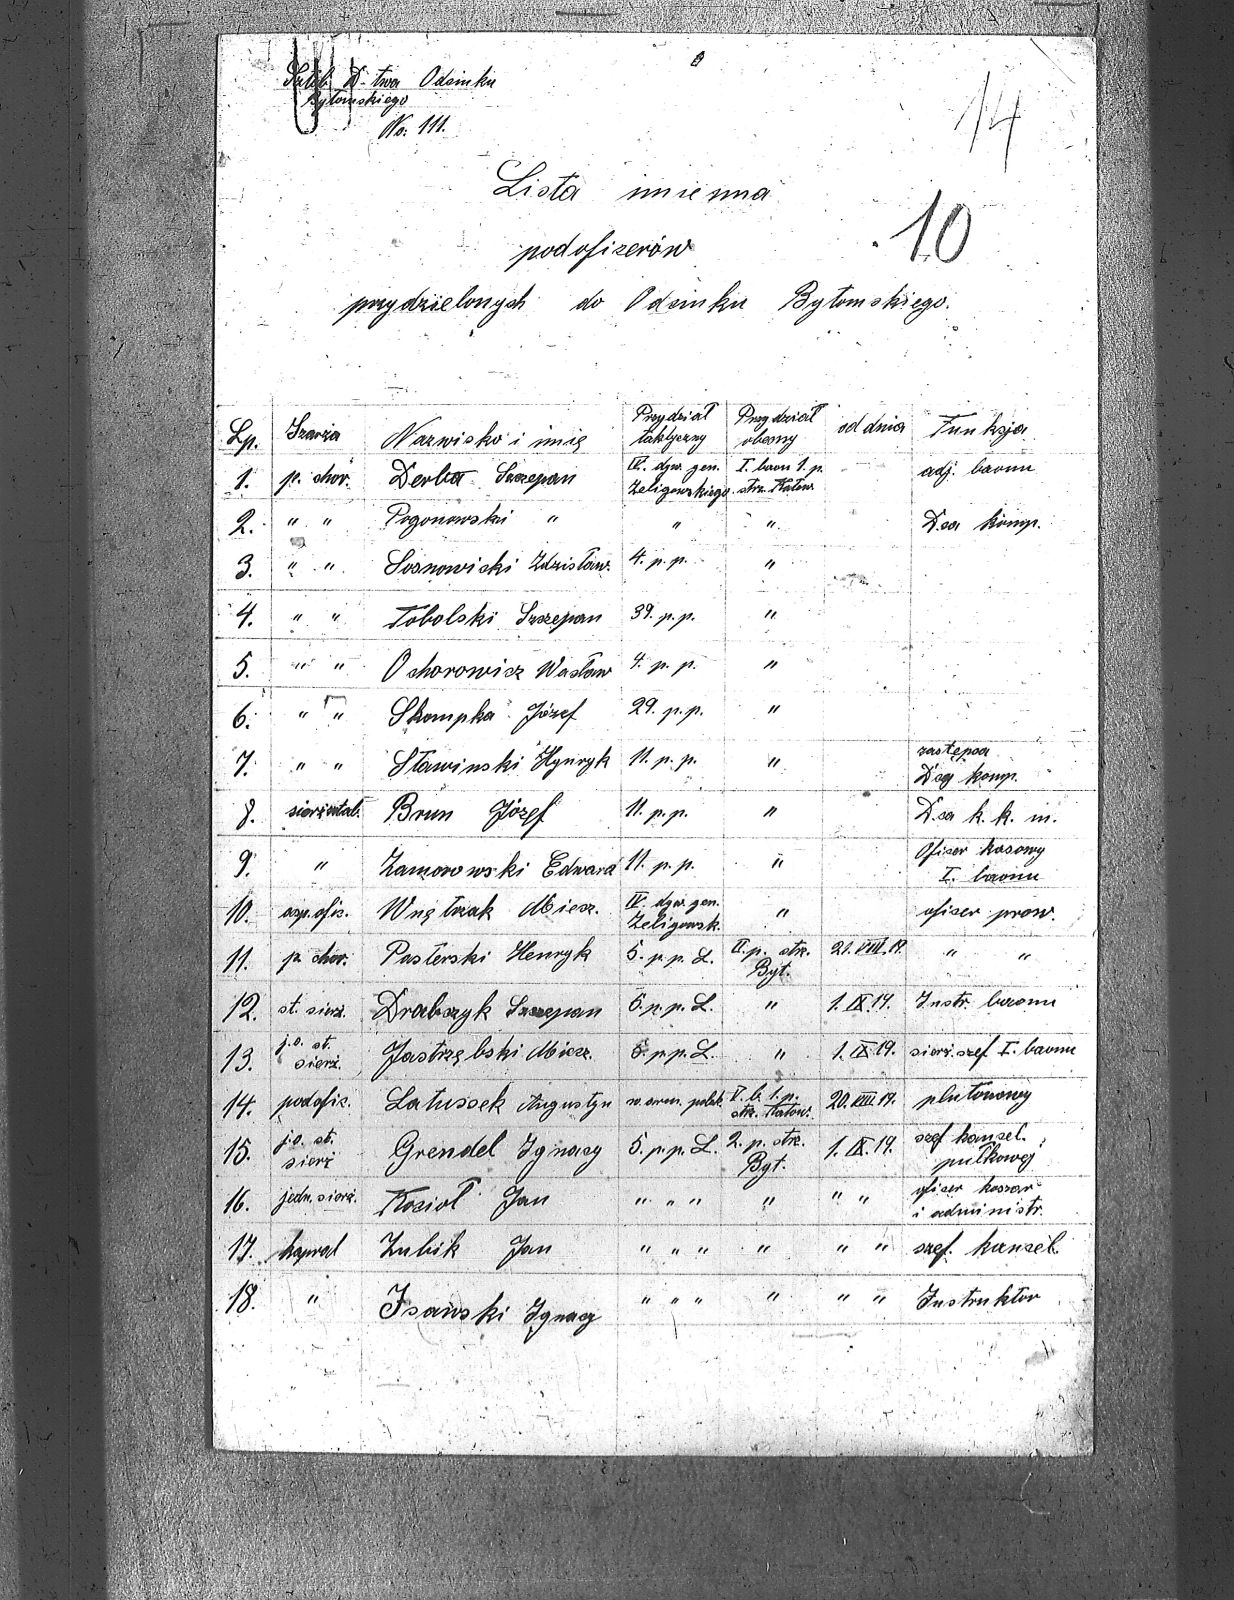 Sztab D-twa Odcinku
Bytomskiego
No. 111.
14
Lista imienna
10
podoficerów
przydzielonych do Odcinku Bytomskiego.
Lp. Szarża Nazwisko i imię Przydział taktyczny Przydział obecny od dnia Funkcja
1. p. chor. Derba Szczepan IV. dyw. gen. Żeligowskiego I. baon 1. p. strz. Katow. adj. baonu
2. " " Pogonowski " " " D.ca komp.
3. " " Sosnowicki Zdzisław. 4. p. p. "
4. " " Tobolski Szczepan 39. p. p. "
5. " " Ochorowicz Wacław 4. p. p. "
6. " " Skompka Józef 29. p. p. "
7. " " Sławinski Hynryk 11. p. p. " zastępca D.cy komp.
8. sierż. sztab. Brun Józef 11. p. p. " D.ca k. k. m.
9. " Zamorowski Edward 11. p. p. " Oficer kasowy I. baonu
10. asp. ofic. Wnętrzak Miecz. IV. dyw. gen. Żeligowsk. " oficer prow.
11. p. chor. Pasterski Henryk 5. p. p. L. II. p. strz. Byt. 21. VIII. 19. " "
12. st. sierż. Drabczyk Szczepan 5. p. p. L. " 1. IX. 19. Instr. baonu
13. j. o. st. sierż. Jastrzębski Miecz. 5. p. p. L. " 1. IX. 19. sierż. szef I. baonu
14. podofic. Latussek Augustyn w arm. polsk. V. b. 1. p. strz. Katow. 20. VIII. 19. plutonowy
15. j. o. st. sierż Grendel Ignacy 5. p. p. L. 2. p. strz. Byt. 1. IX. 19. szef kancel. pułkowej
16. jedn. sierż. Kozioł Jan " " " " " " oficer koszar i administr.
17. kapral Zubik Jan " " " " " " szef. kancel.
18. " Isawski Ignacy " " " " " " Instruktor